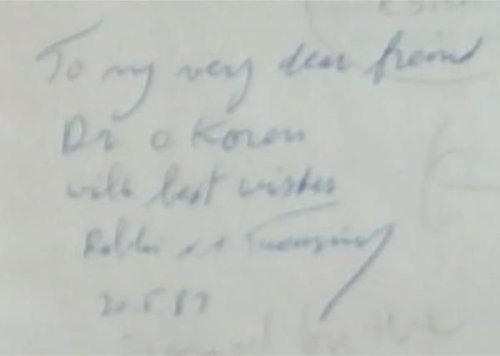 To my very dear freind
Dr O Koren
with best wishes
Rabbi
20.5.87